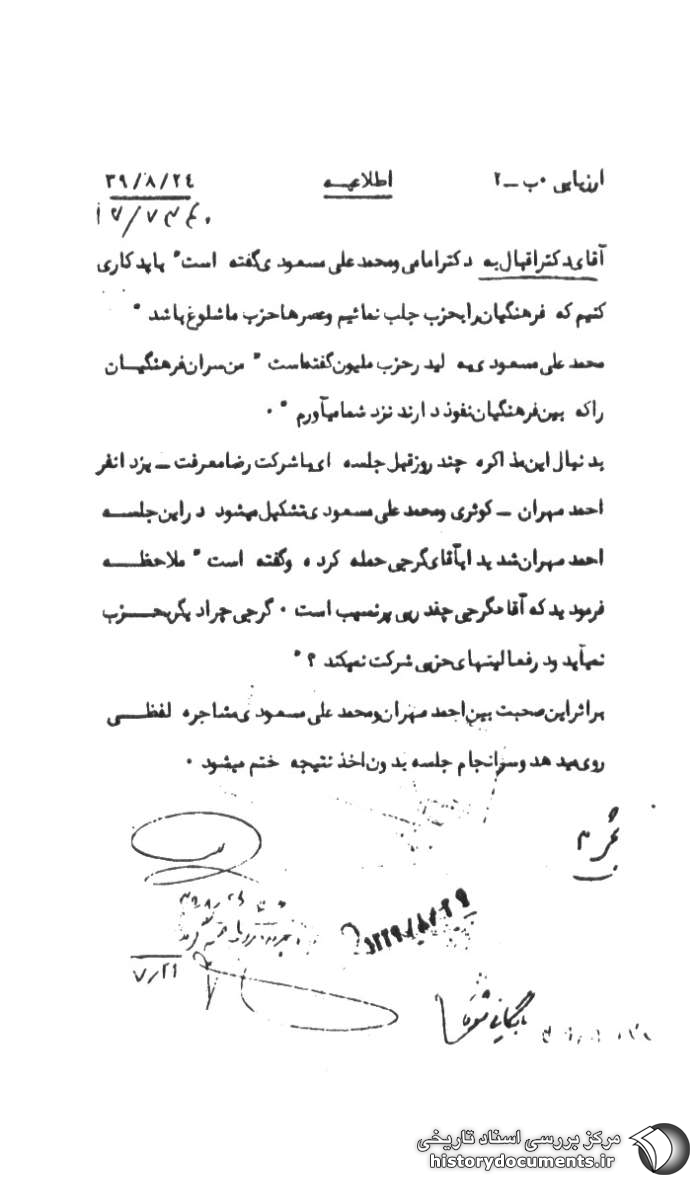 ارزیابی ۰ ب – ۲ اطلاعیه ۳۹/۸/۲۴
آقای دکتر اقبال به دکتر امامی و محمد علی مسعودی گفته است " باید کاری
کنیم که فرهنگیان را بحزب جلب نمائیم و عصرها حزب ما شلوغ باشد "
محمد علی مسعودی به لیدر حزب ملیون گفته است " من سران فرهنگیان
را که بین فرهنگیان نفوذ دارند نزد شما میآورم " ۰
بدنبال این مذاکره چند روز قبل جلسه ای با شرکت رضا معرفت – یزدانفر
احمد مهران – کوثری و محمد علی مسعودی تشکیل میشود در این جلسه
احمد مهران شدیدا بآقای گرجی حمله کرده و گفته است " ملاحظه
فرمودید که آقای گرجی چقدر بی پرنسیب است ۰ گرجی چرا دیگر بحزب
نمیآید و در فعالیتهای حزبی شرکت نمیکند ؟ "
بر اثر این صحبت بین احمد مهران و محمد علی مسعودی مشاجره لفظی
روی میدهد و سرانجام جلسه بدون اخذ نتیجه ختم میشود ۰
۷/۲۹
بایگانی شود
مرکز بررسی اسناد تاریخی
historydocuments.ir